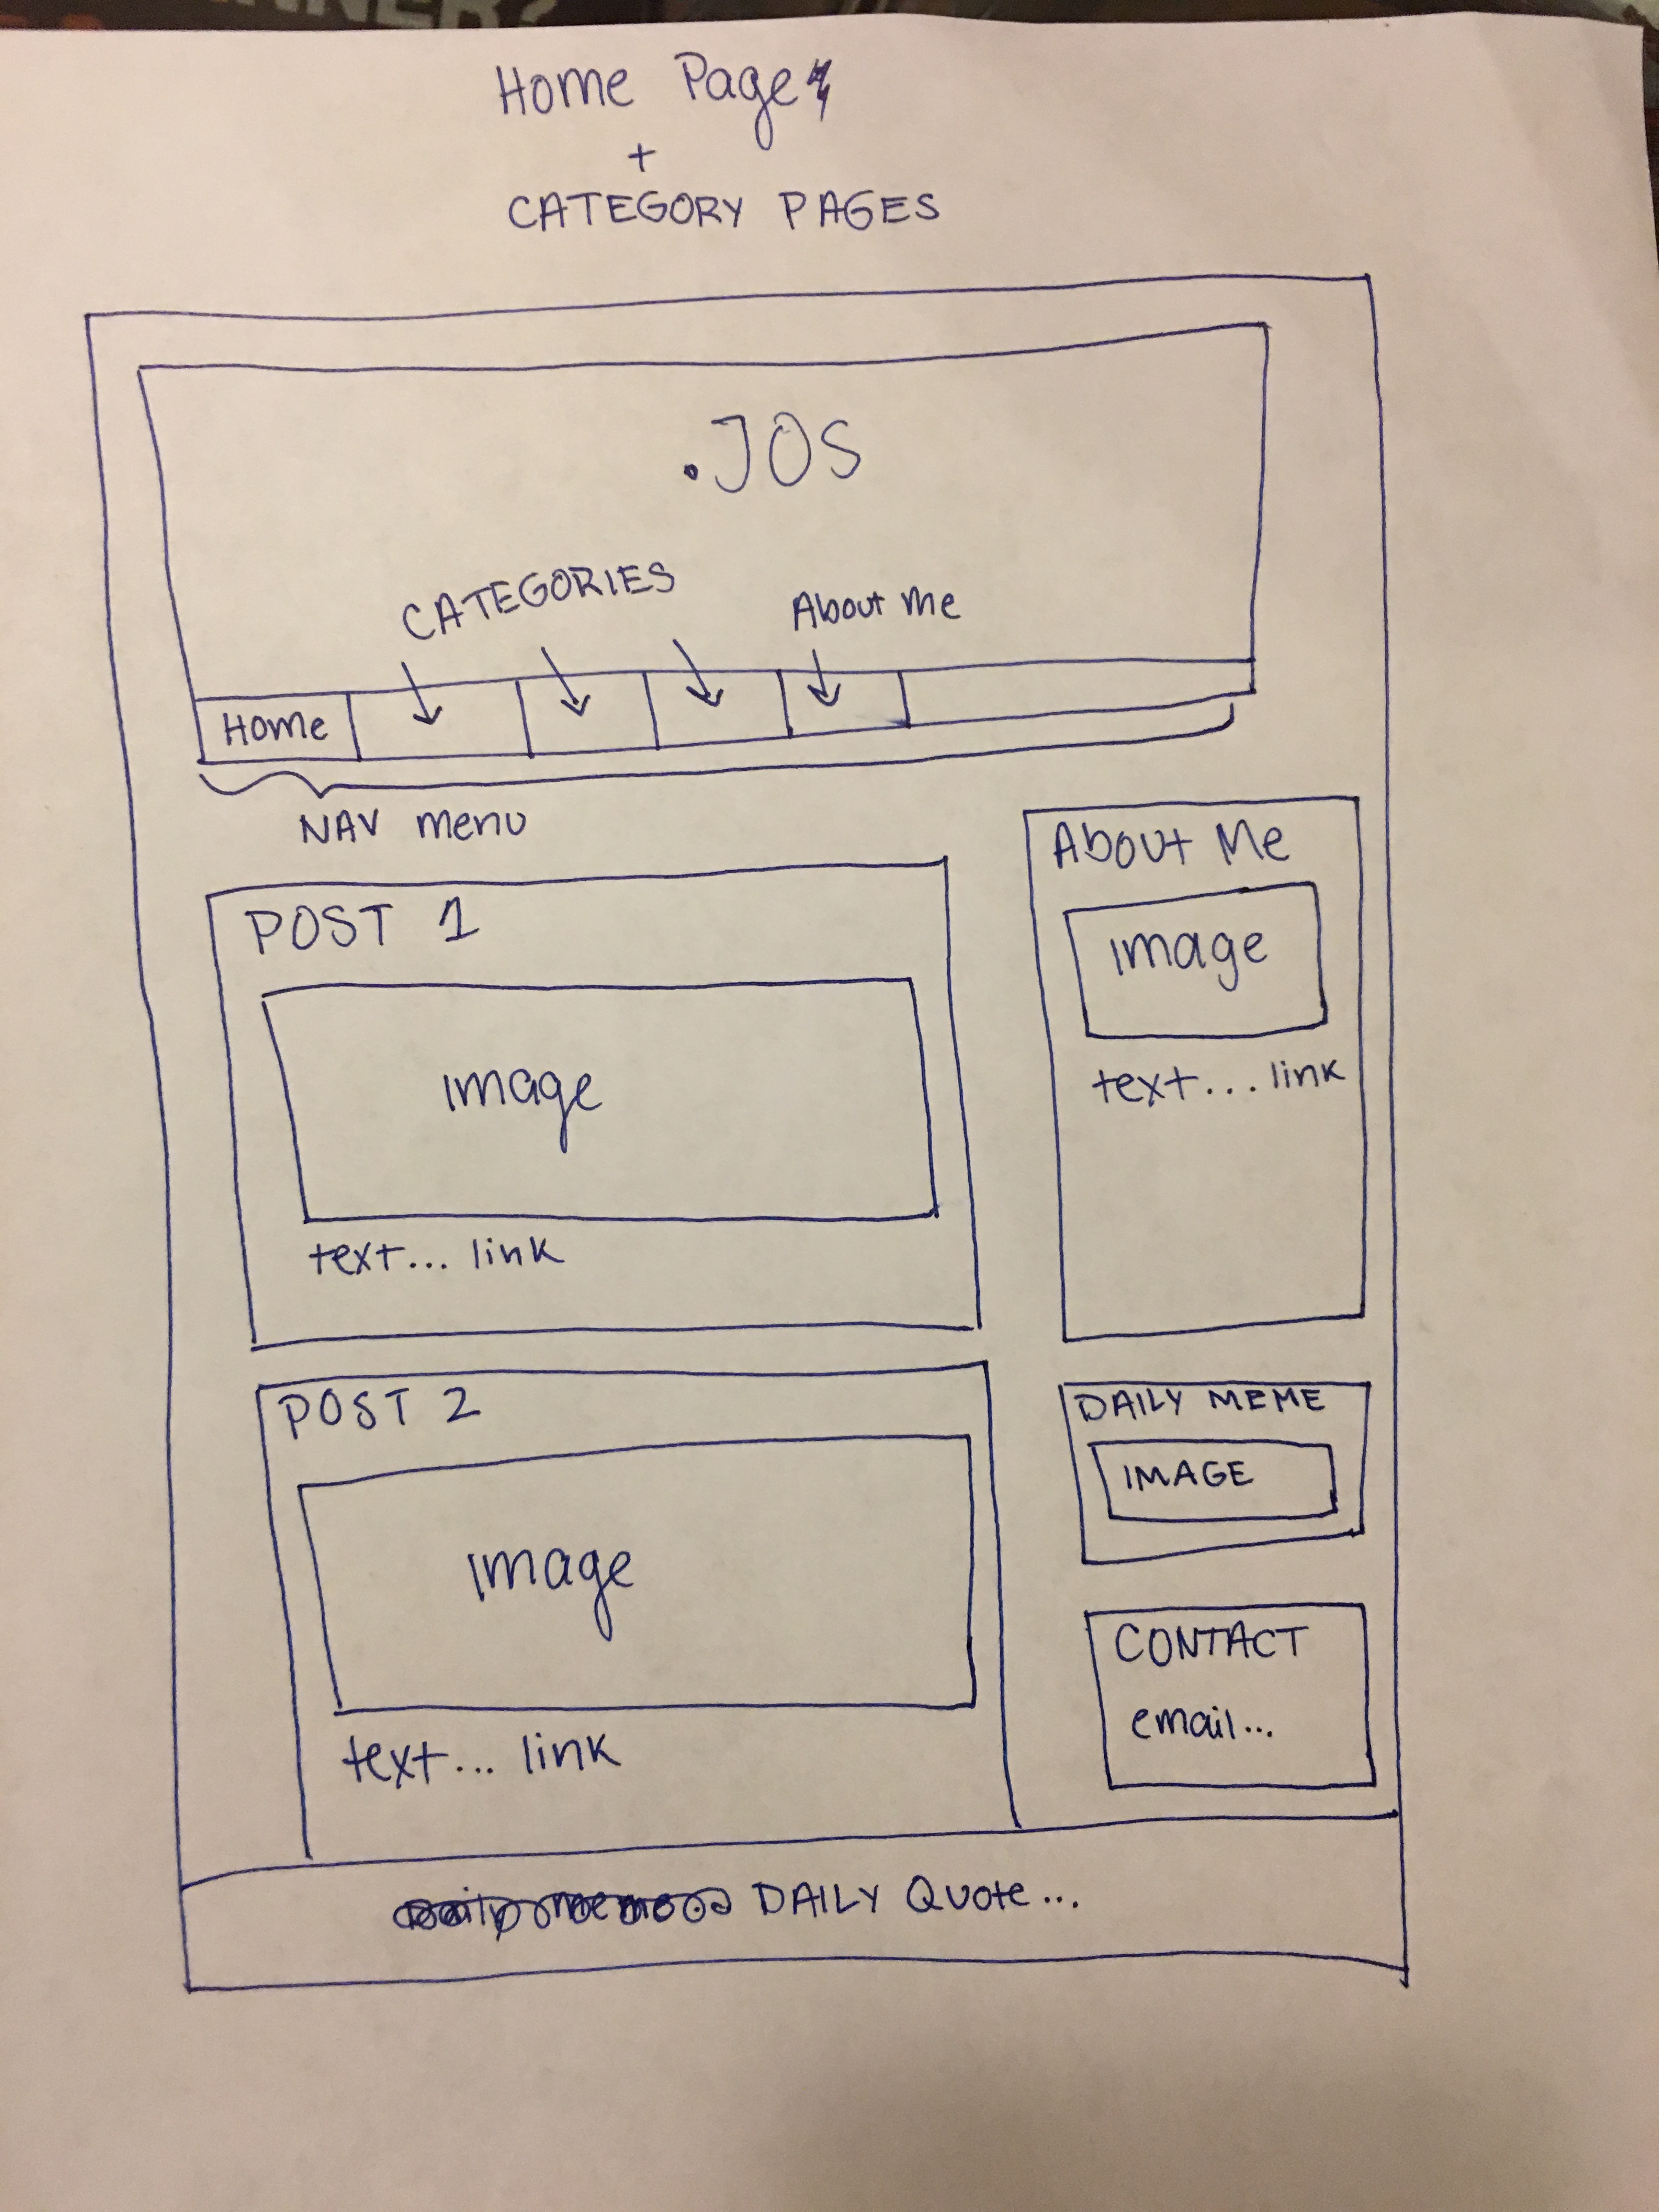 NNER?
Home Page
+
CATEGORY PAGES
.JOS
CATEGORIES
About Me
Home
NAV menu
About Me
image
text... link
POST 1
image
text... link
POST 2
image
text... link
DAILY MEME
IMAGE
CONTACT
email...
DAILY QUOTE...